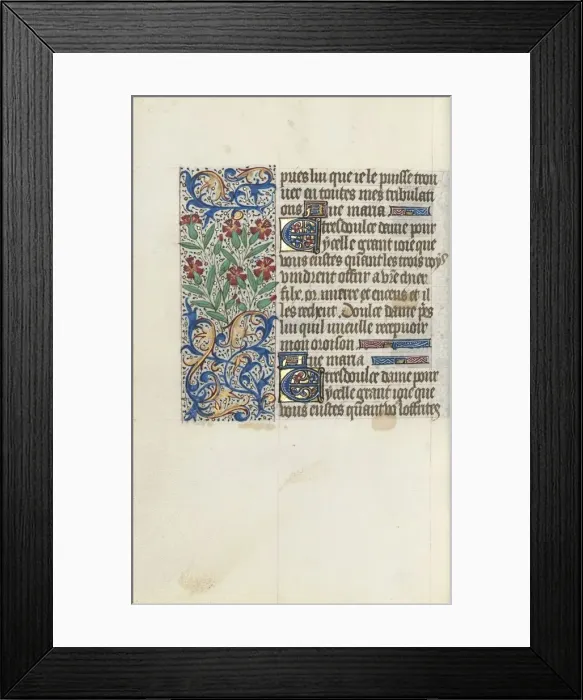 pries lui que ie le puisse trou
uer en toutes mes tribulati
ons Aue maria
E tresdoulce dame pour
ycelle grant ioie que
vous eustes quant les trois roys
vindrent offrir a vre chier
filz or mirre et encens et il
les rechent. Doulce dame pries
lui quil vueille recepuoir
mon oroison.
Aue maria
E tresdoulce dame pour
ycelle grant ioie que
vous eustes quant vo loffrites